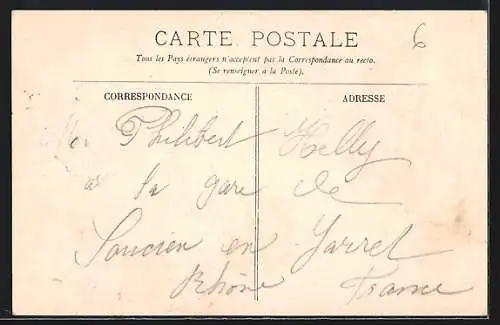 CARTE POSTALE
6
Tous les Pays étrangers n'acceptent pas la Correspondance au recto.
(Se renseigner à la Poste).
CORRESPONDANCE
ADRESSE
Philibert
a la gare de
Soucieu en Jarret
Rhône France